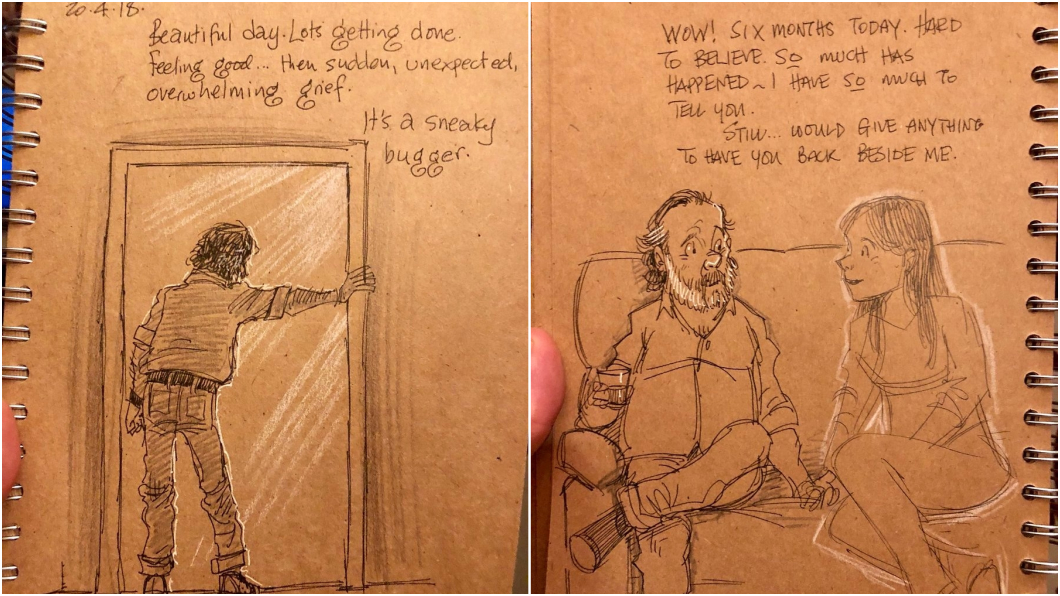 20.4.18.
Beautiful day. Lots getting done.
feeling good... then sudden, unexpected,
overwhelming grief.
It's a sneaky
bugger.
WOW! SIX MONTHS TODAY. HARD
TO BELIEVE. SO MUCH HAS
HAPPENED ~ I HAVE SO MUCH TO
TELL YOU.
STILL... WOULD GIVE ANYTHING
TO HAVE YOU BACK BESIDE ME.